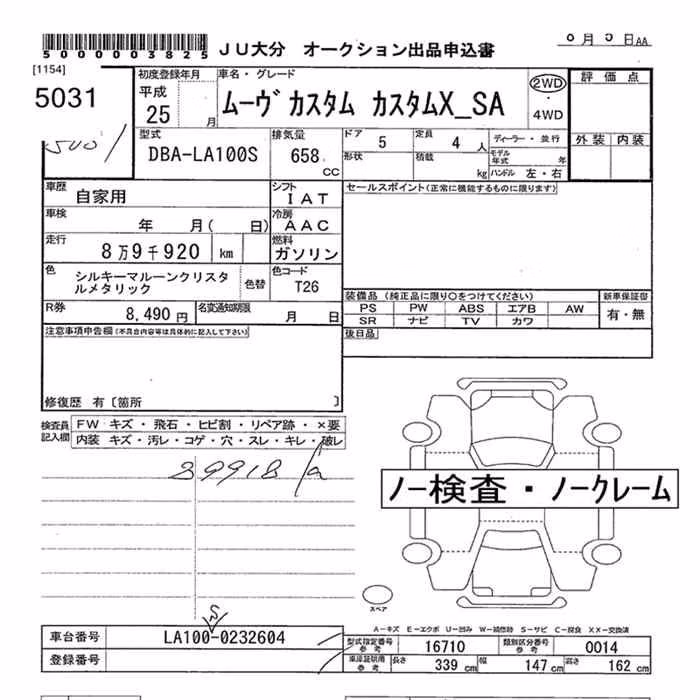 5000003825
JU大分 オークション出品申込書
0月0日AA
[1154]
5031
初度登録年月
平成
25 月
車名・グレード
ムーヴカスタム カスタムX_SA
2WD
・
4WD
評価点
外装 内装
型式
DBA-LA100S
排気量
658 CC
ドア 5
定員 4 人
形状
積載 kg
ディーラー・並行
モデル年式 年
ハンドル 左・右
車歴
自家用
シフト
IAT
セールスポイント(正常に機能するものに限ります)
車検
年 月( 日)
冷房
AAC
走行
8万9千920 km
燃料
ガソリン
色
シルキーマルーンクリスタルメタリック
色替
色コード
T26
R券
8,490円
名変通知期限
月 日
装備品(純正品に限り○をつけてください)
新車保証書
PS PW ABS エアB AW
有・無
SR ナビ TV カワ
後日品
注意事項申告欄(不具合内容等は具体的に記入して下さい)
修復歴 有〔箇所 〕
検査員記入欄
FW キズ・飛石・ヒビ割・リペア跡・×要
内装 キズ・汚レ・コゲ・穴・スレ・キレ・破レ
89918
ノー検査・ノークレーム
スペア
A-キズ E-エクボ U-凹み W-補修跡 S-サビ C-腐食 XX-交換済
車台番号
LA100-0232604
S
型式指定番号 参考
16710
類別区分番号 参考
0014
登録番号
車庫証明用 参考
長さ 339 cm
幅 147 cm
高さ 162 cm